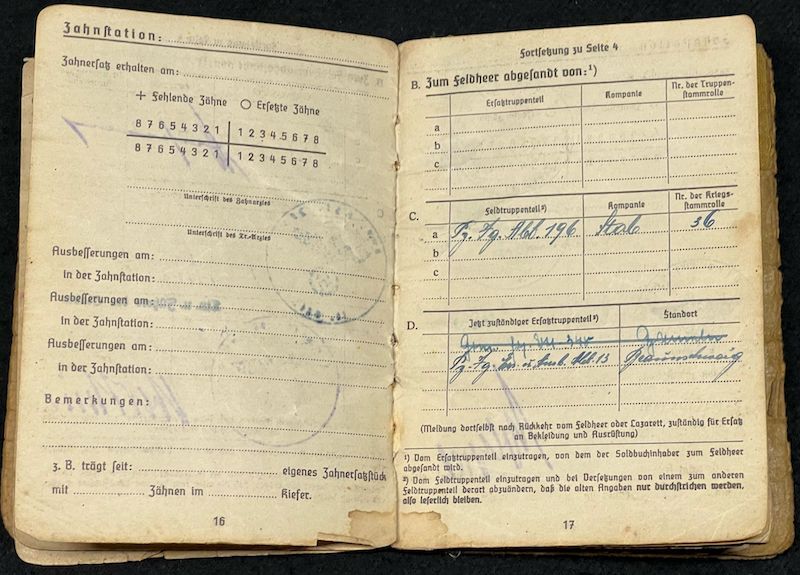 Zahnstation:
Zahnersatz erhalten am:
+ Fehlende Zähne O Ersetzte Zähne
8 7 6 5 4 3 2 1 | 1 2 3 4 5 6 7 8
8 7 6 5 4 3 2 1 | 1 2 3 4 5 6 7 8
Unterschrift des Zahnarztes
Unterschrift des Tr.-Arztes
Ausbesserungen am:
in der Zahnstation:
Ausbesserungen am:
in der Zahnstation:
Ausbesserungen am:
in der Zahnstation:
Bemerkungen:
z. B. trägt seit: eigenes Zahnersatzstück
mit Zähnen im Kiefer.
16
Fortsetzung zu Seite 4
B. Zum Feldheer abgesandt von:¹)
Ersatztruppenteil Kompanie Nr. der Truppen-
stammrolle
a
b
c
C. Feldtruppenteil²) Kompanie Nr. der Kriegs-
stammrolle
a Pz. Jg. Abt. 196 Stab 36
b
c
D. Jetzt zuständiger Ersatztruppenteil²) Standort
Pz. Jg. Ers. u. Ausb. Abt. 13 Braunschweig
(Meldung dortselbst nach Rückkehr vom Feldheer oder Lazarett, zuständig für Ersatz
an Bekleidung und Ausrüstung)
¹) Vom Ersatztruppenteil einzutragen, von dem der Soldbuchinhaber zum Feldheer
abgesandt wird.
²) Vom Feldtruppenteil einzutragen und bei Versetzungen von einem zum anderen
Feldtruppenteil derart abzuändern, daß die alten Angaben nur durchstrichen werden,
also leserlich bleiben.
17